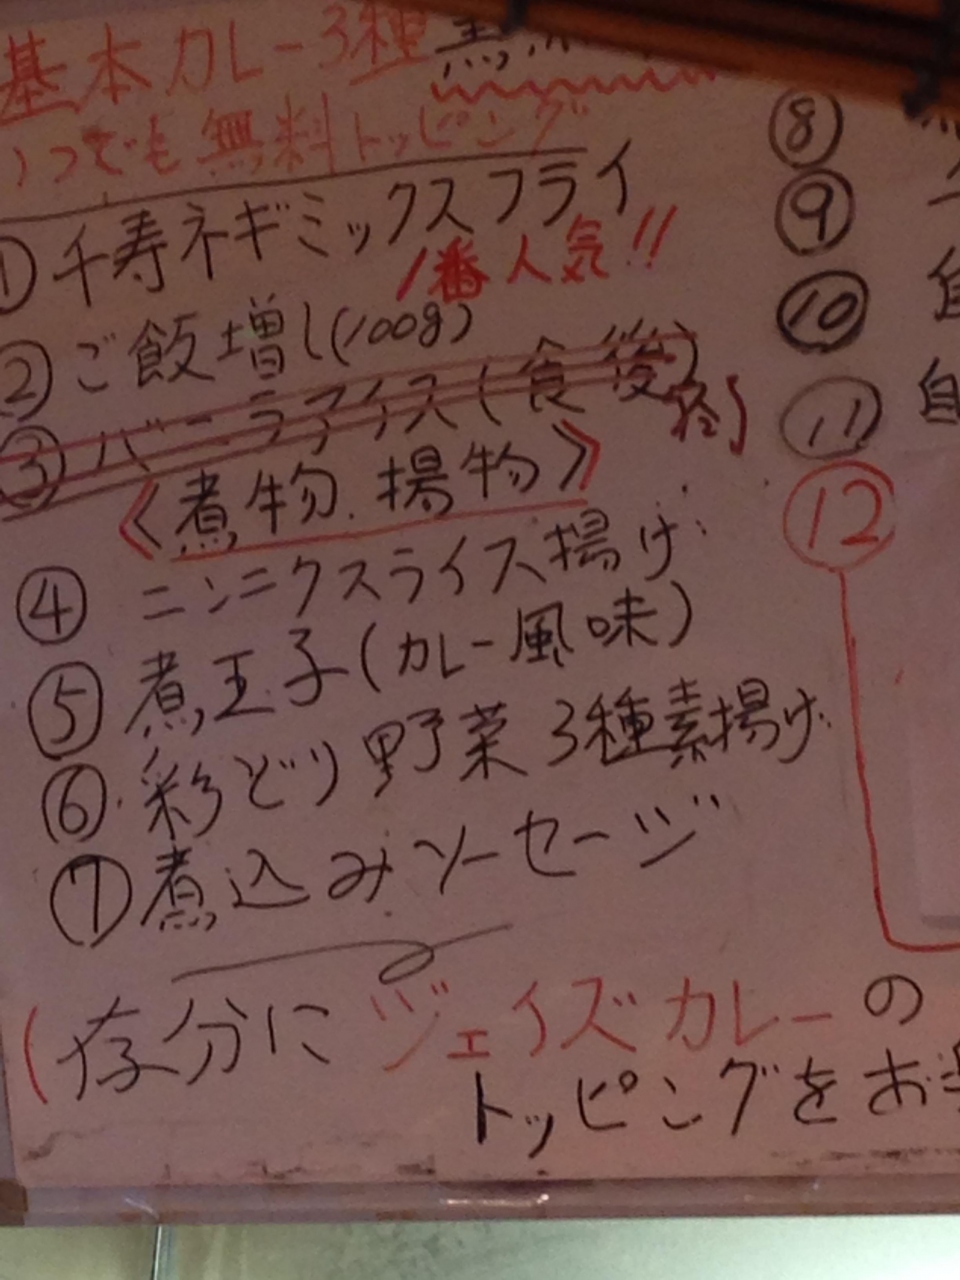 基本カレー3種
いつでも無料トッピング
① 千寿ネギミックスフライ
1番人気!!
② ご飯増し(100g)
③ バニラアイス(食後)
終
<煮物.揚物>
④ ニンニクスライス揚げ
⑤ 煮玉子(カレー風味)
⑥ 彩どり野菜3種素揚げ
⑦ 煮込みソーセージ
(存分にジェイズカレーの
トッピングをお
⑧
⑨
⑩ 自
⑪ 自
⑫